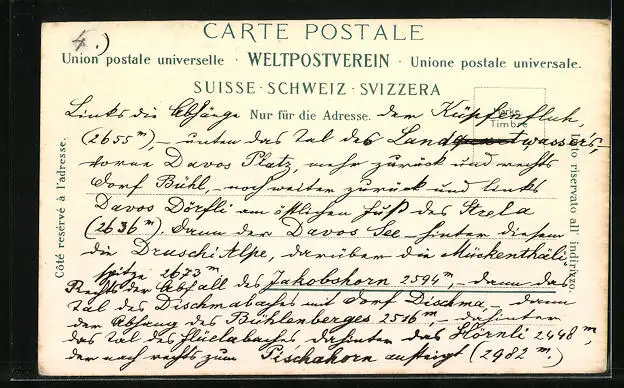 4.)
CARTE POSTALE
Union postale universelle · WELTPOSTVEREIN · Unione postale universale.
SUISSE · SCHWEIZ · SVIZZERA
Nur für die Adresse.
Marke
Timbre
Côté réservé à l'adresse.
Lato riservato all' indirizzo.
Links die Abhänge der Küpfenfluh,
(2655 m), – unten das Tal des Landwassers,
vorne Davos Platz, mehr zurück und rechts
Dorf Bühl, – noch weiter zurück und links
Davos Dörfli am östlichen Fuß des Strela
(2636 m). Dann der Davos See – hinter diesem
die Druschi Alpe, darüber die Mückenthäli-
spitze 2673 m
Rechts der Abfall des Jakobshorn 2594 m, – dann das
Tal des Dischmabaches mit Dorf Dischma – dann
der Abhang des Bühlenberges 2516 m, – dahinter
das Tal des Flüelabaches, dahinter das Hörnli 2448 m,
der nach rechts zum Pischahorn ansteigt (2982 m.)